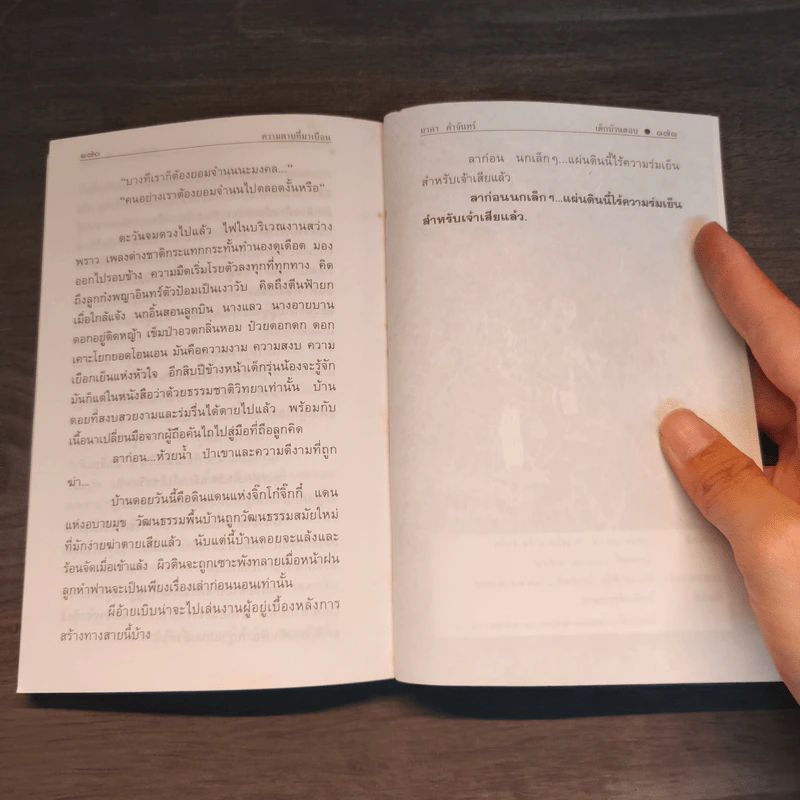 ๑๗๐ ความตายที่มาเยือน
“บางทีเราก็ต้องยอมจำนนนะมงคล...”
“คนอย่างเราต้องยอมจำนนไปตลอดงั้นหรือ”
ตะวันจมดวงไปแล้ว ไฟในบริเวณงานสว่าง
พราว เพลงต่างชาติกระแทกกระทั้นทำนองดุเดือด มอง
ออกไปรอบข้าง ความมืดเริ่มโรยตัวลงทุกที่ทุกทาง คิด
ถึงลูกก่งพญาอินทร์ตัวป้อมเป็นเงาวับ คิดถึงตีนฟ้ายก
เมื่อใกล้แจ้ง นกอิ้นสอนลูกบิน นางแลว นางอายบาน
ดอกอยู่ติดหญ้า เข็มป่าอวดกลิ่นหอม ป๋วยดอกดก ดอก
เคาะโยกยอดโอนเอน มันคือความงาม ความสงบ ความ
เยือกเย็นแห่งหัวใจ อีกสิบปีข้างหน้าเด็กรุ่นน้องจะรู้จัก
มันก็แต่ในหนังสือว่าด้วยธรรมชาติวิทยาเท่านั้น บ้าน
ดอยที่สงบสวยงามและร่มรื่นได้ตายไปแล้ว พร้อมกับ
เนื้อนาเปลี่ยนมือจากผู้ถือคันไถไปสู่มือที่ถือลูกคิด
ลาก่อน...ห้วยน้ำ ป่าเขาและความดีงามที่ถูก
ฆ่า...
บ้านดอยวันนี้คือดินแดนแห่งจิ๊กโก๋จิ๊กกี๋ แดน
แห่งอบายมุข วัฒนธรรมพื้นบ้านถูกวัฒนธรรมสมัยใหม่
ที่มักง่ายฆ่าตายเสียแล้ว นับแต่นี้บ้านดอยจะแล้งและ
ร้อนจัดเมื่อเข้าแล้ง ผิวดินจะถูกเซาะพังทลายเมื่อหน้าฝน
ลูกห้าฟานจะเป็นเพียงเรื่องเล่าก่อนนอนเท่านั้น
ผีอ้ายเบิบน่าจะไปเล่นงานผู้อยู่เบื้องหลังการ
สร้างทางสายนี้บ้าง
มาลา คำจันทร์ เด็กบ้านดอย ● ๑๗๑
ลาก่อน นกเล็กๆ...แผ่นดินนี้ไร้ความร่มเย็น
สำหรับเจ้าเสียแล้ว
ลาก่อนนกเล็กๆ...แผ่นดินนี้ไร้ความร่มเย็น
สำหรับเจ้าเสียแล้ว.